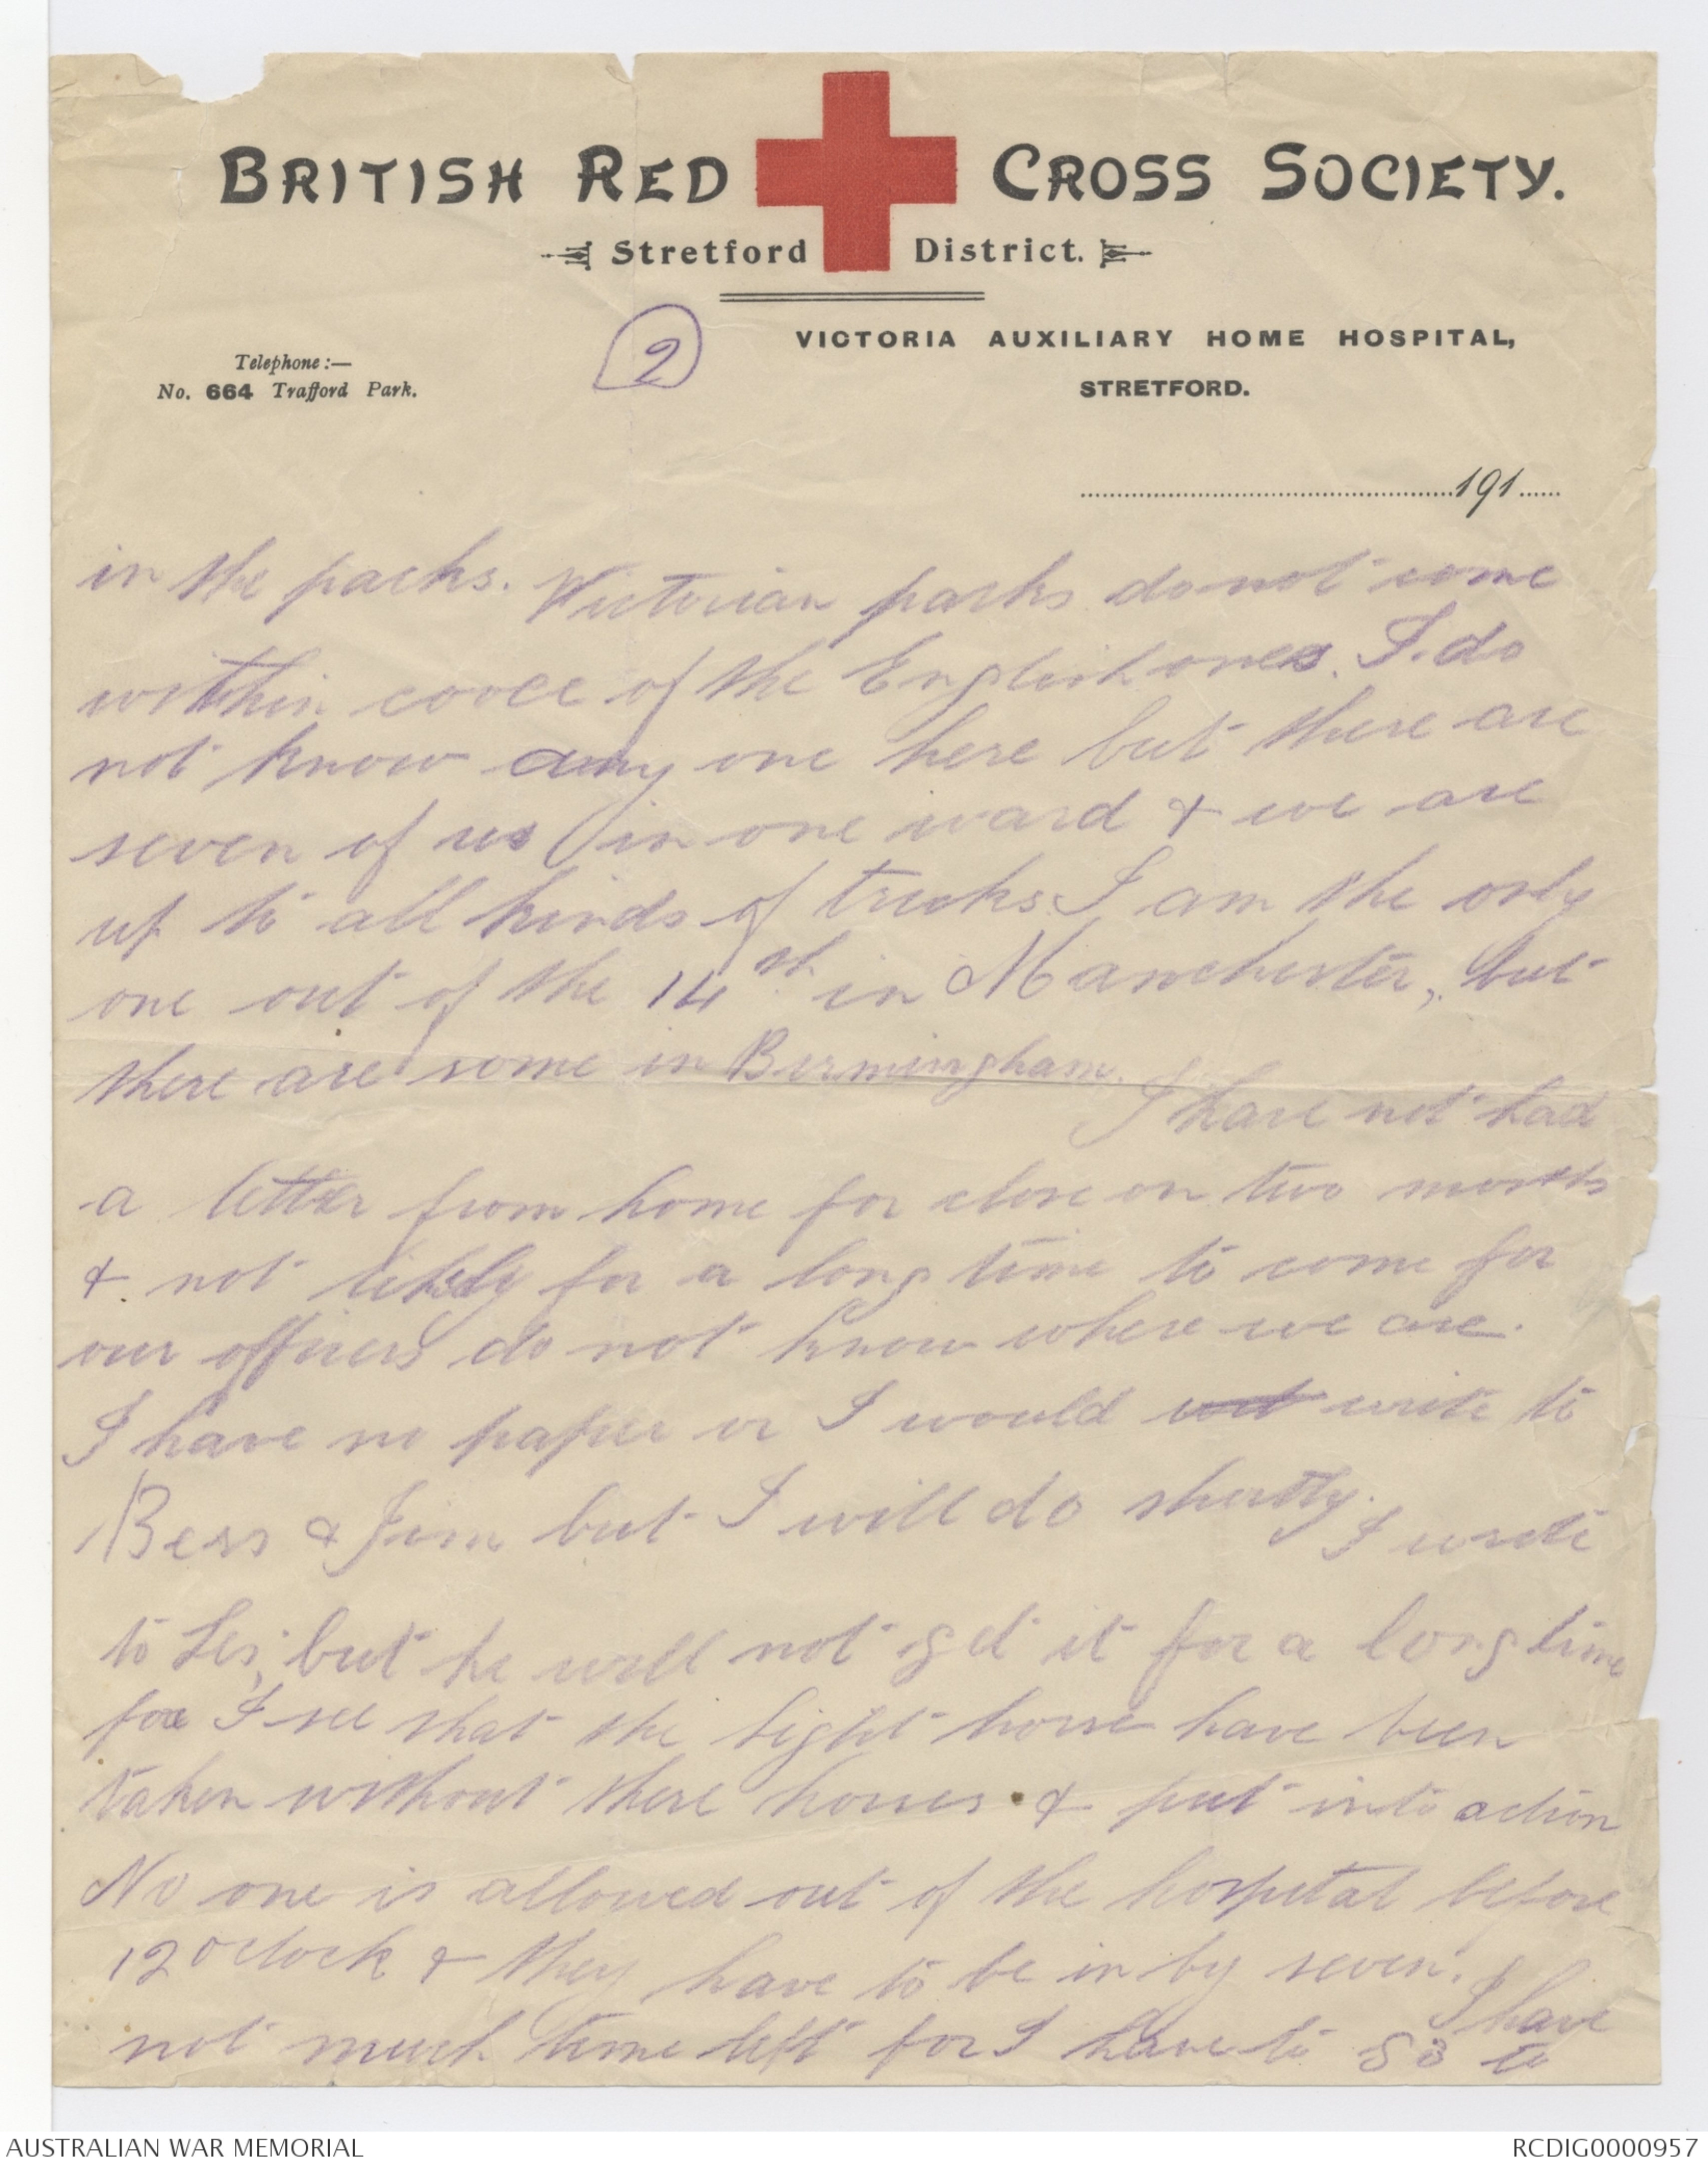 BRITISH RED CROSS SOCIETY.
Stretford District.
2
VICTORIA AUXILIARY HOME HOSPITAL,
STRETFORD.
Telephone:—
No. 664 Trafford Park.
191
in the parks. Victorian parks do not come
within cooee of the English ones. I do
not know any one here but there are
seven of us in one ward & we are
up to all kinds of tricks. I am the only
one out of the 14th in Manchester, but
there are some in Birmingham.
I have not had
a letter from home for close on two months
& not likely for a long time to come for
our officers do not know where we are.
I have no paper or I would write to
Bess & Jim but I will do shortly.
I wrote
to Les, but he will not get it for a long time
for I see that the light horse have been
taken without there horses & put into action
No one is allowed out of the hospital before
12 oclock & they have to be in by seven.
I have
not much time left for I have to go to
AUSTRALIAN WAR MEMORIAL
RCDIG0000957